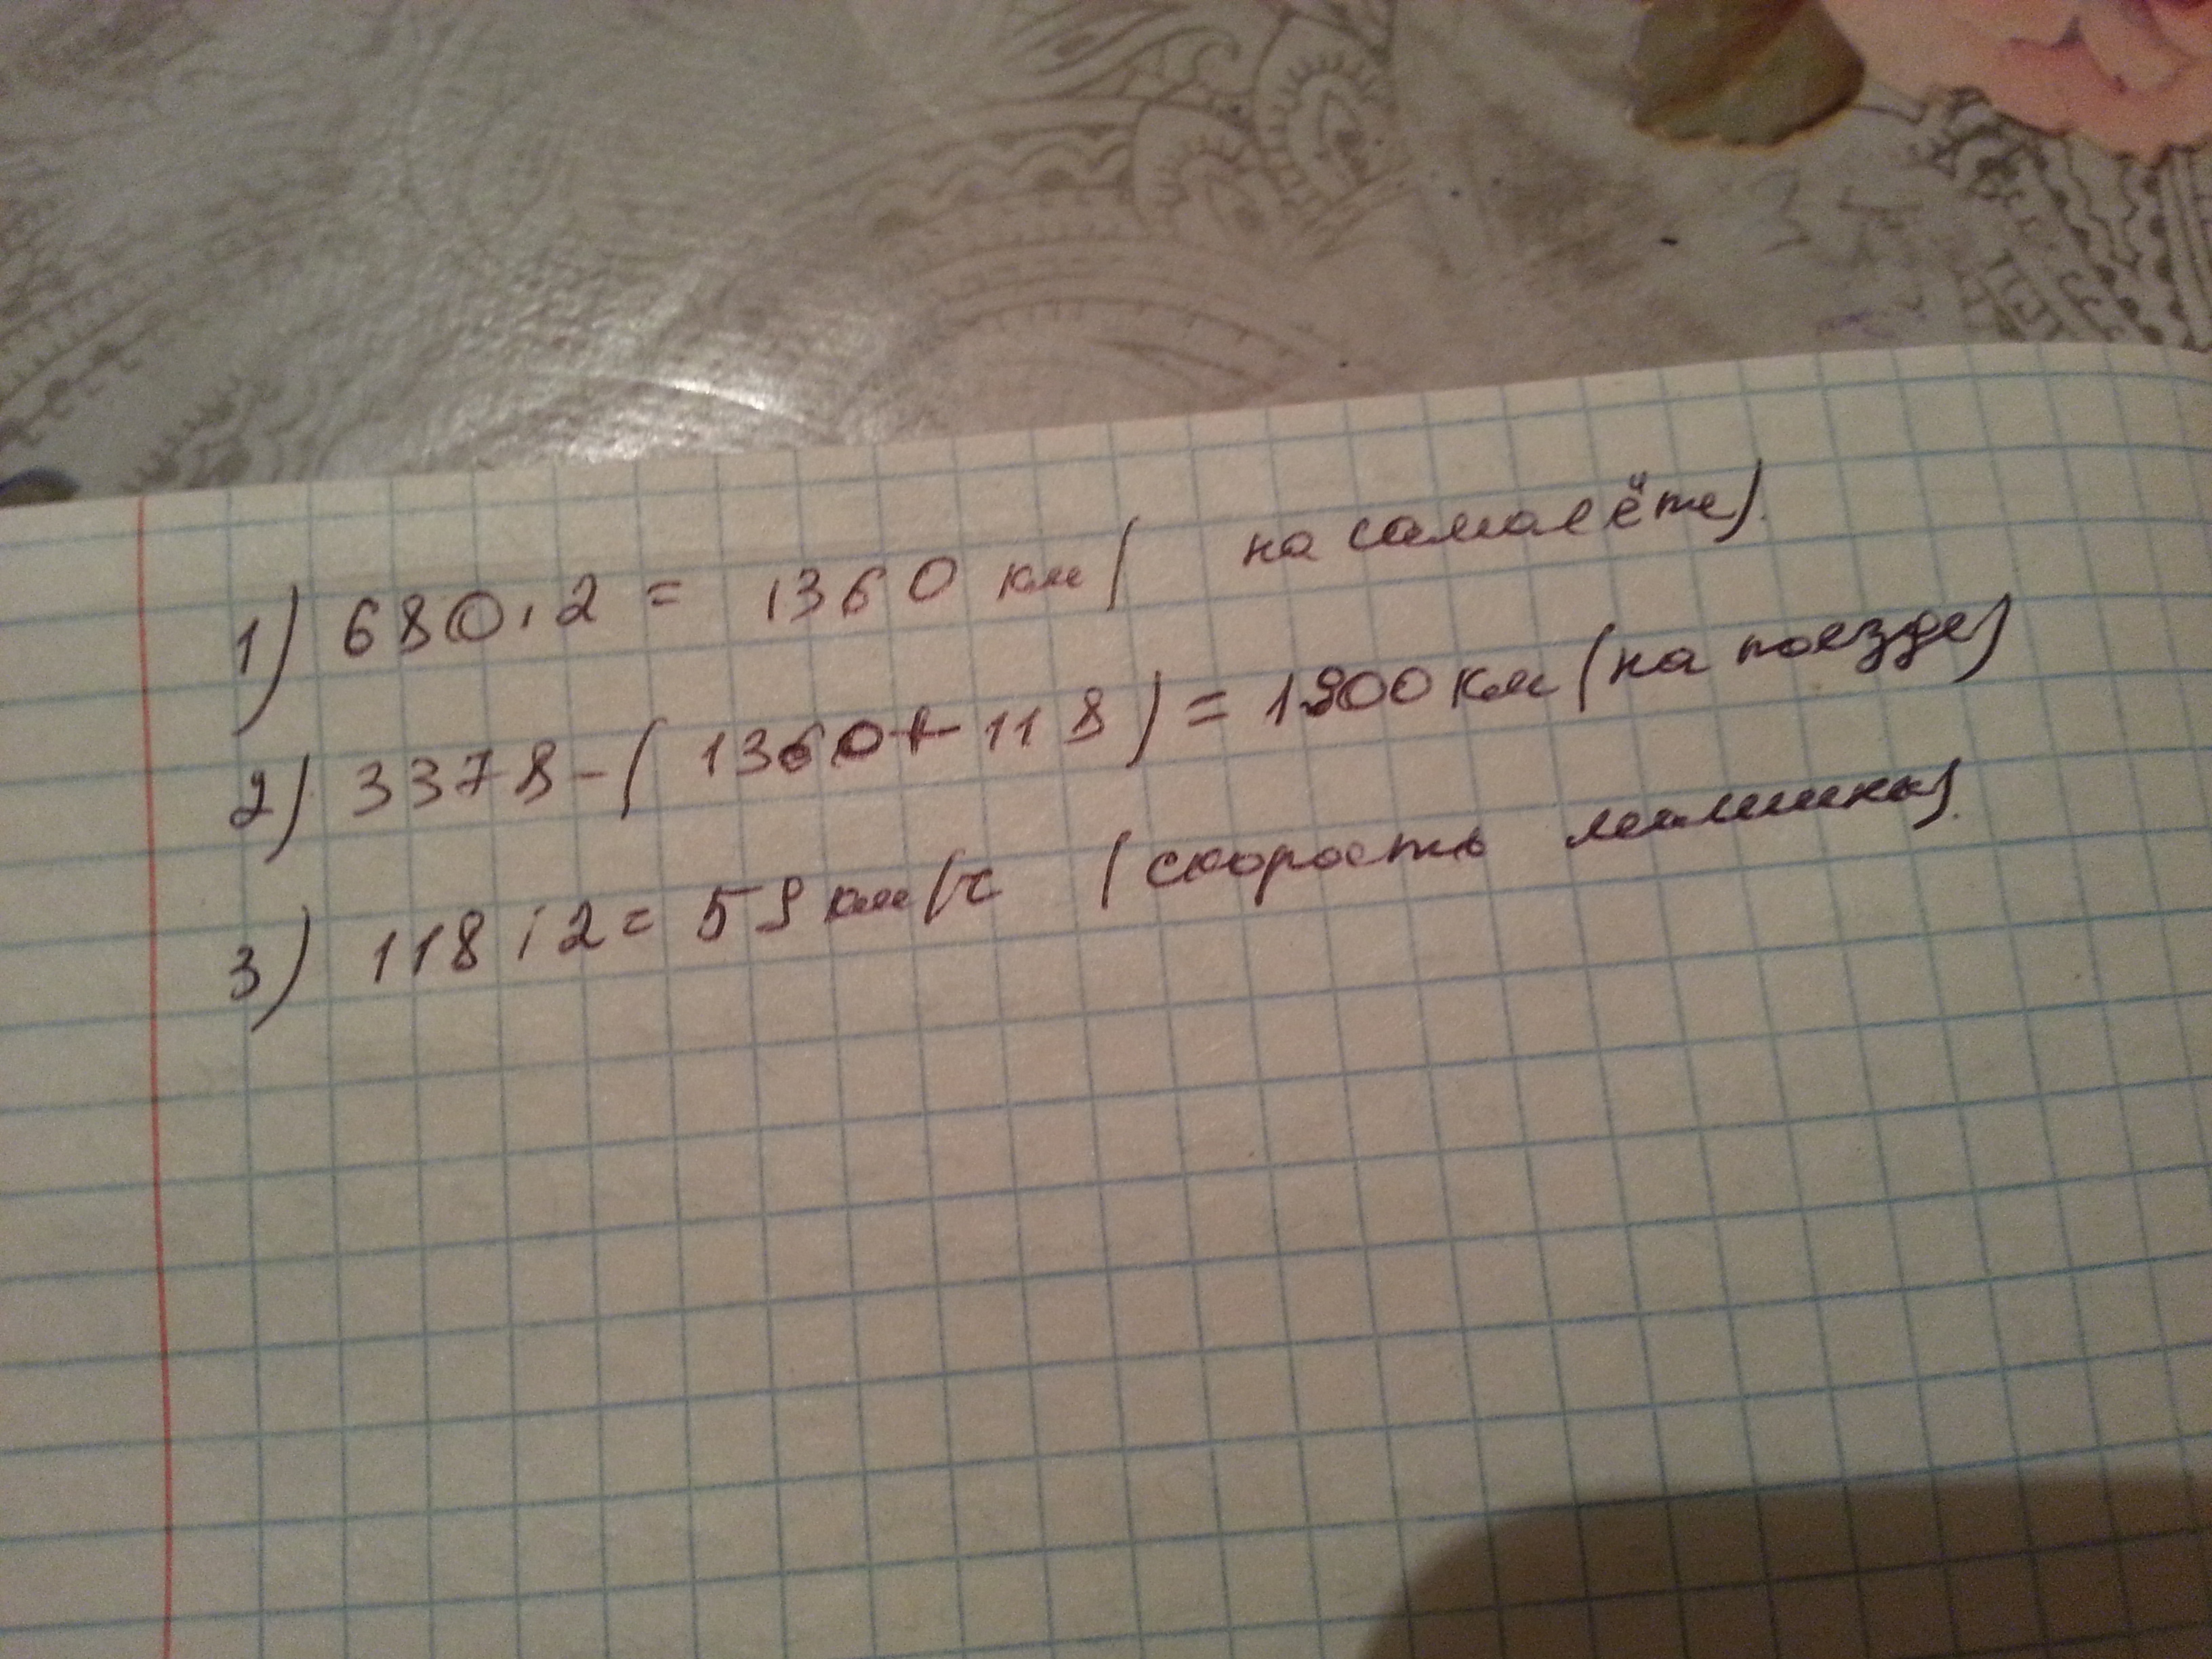 1) 680 · 2 = 1360 км ( на самолёте).
2) 3378 - ( 1360 + 118 ) = 1900 км (на поезде)
3) 118 : 2 = 59 км/ч (скорость машины).